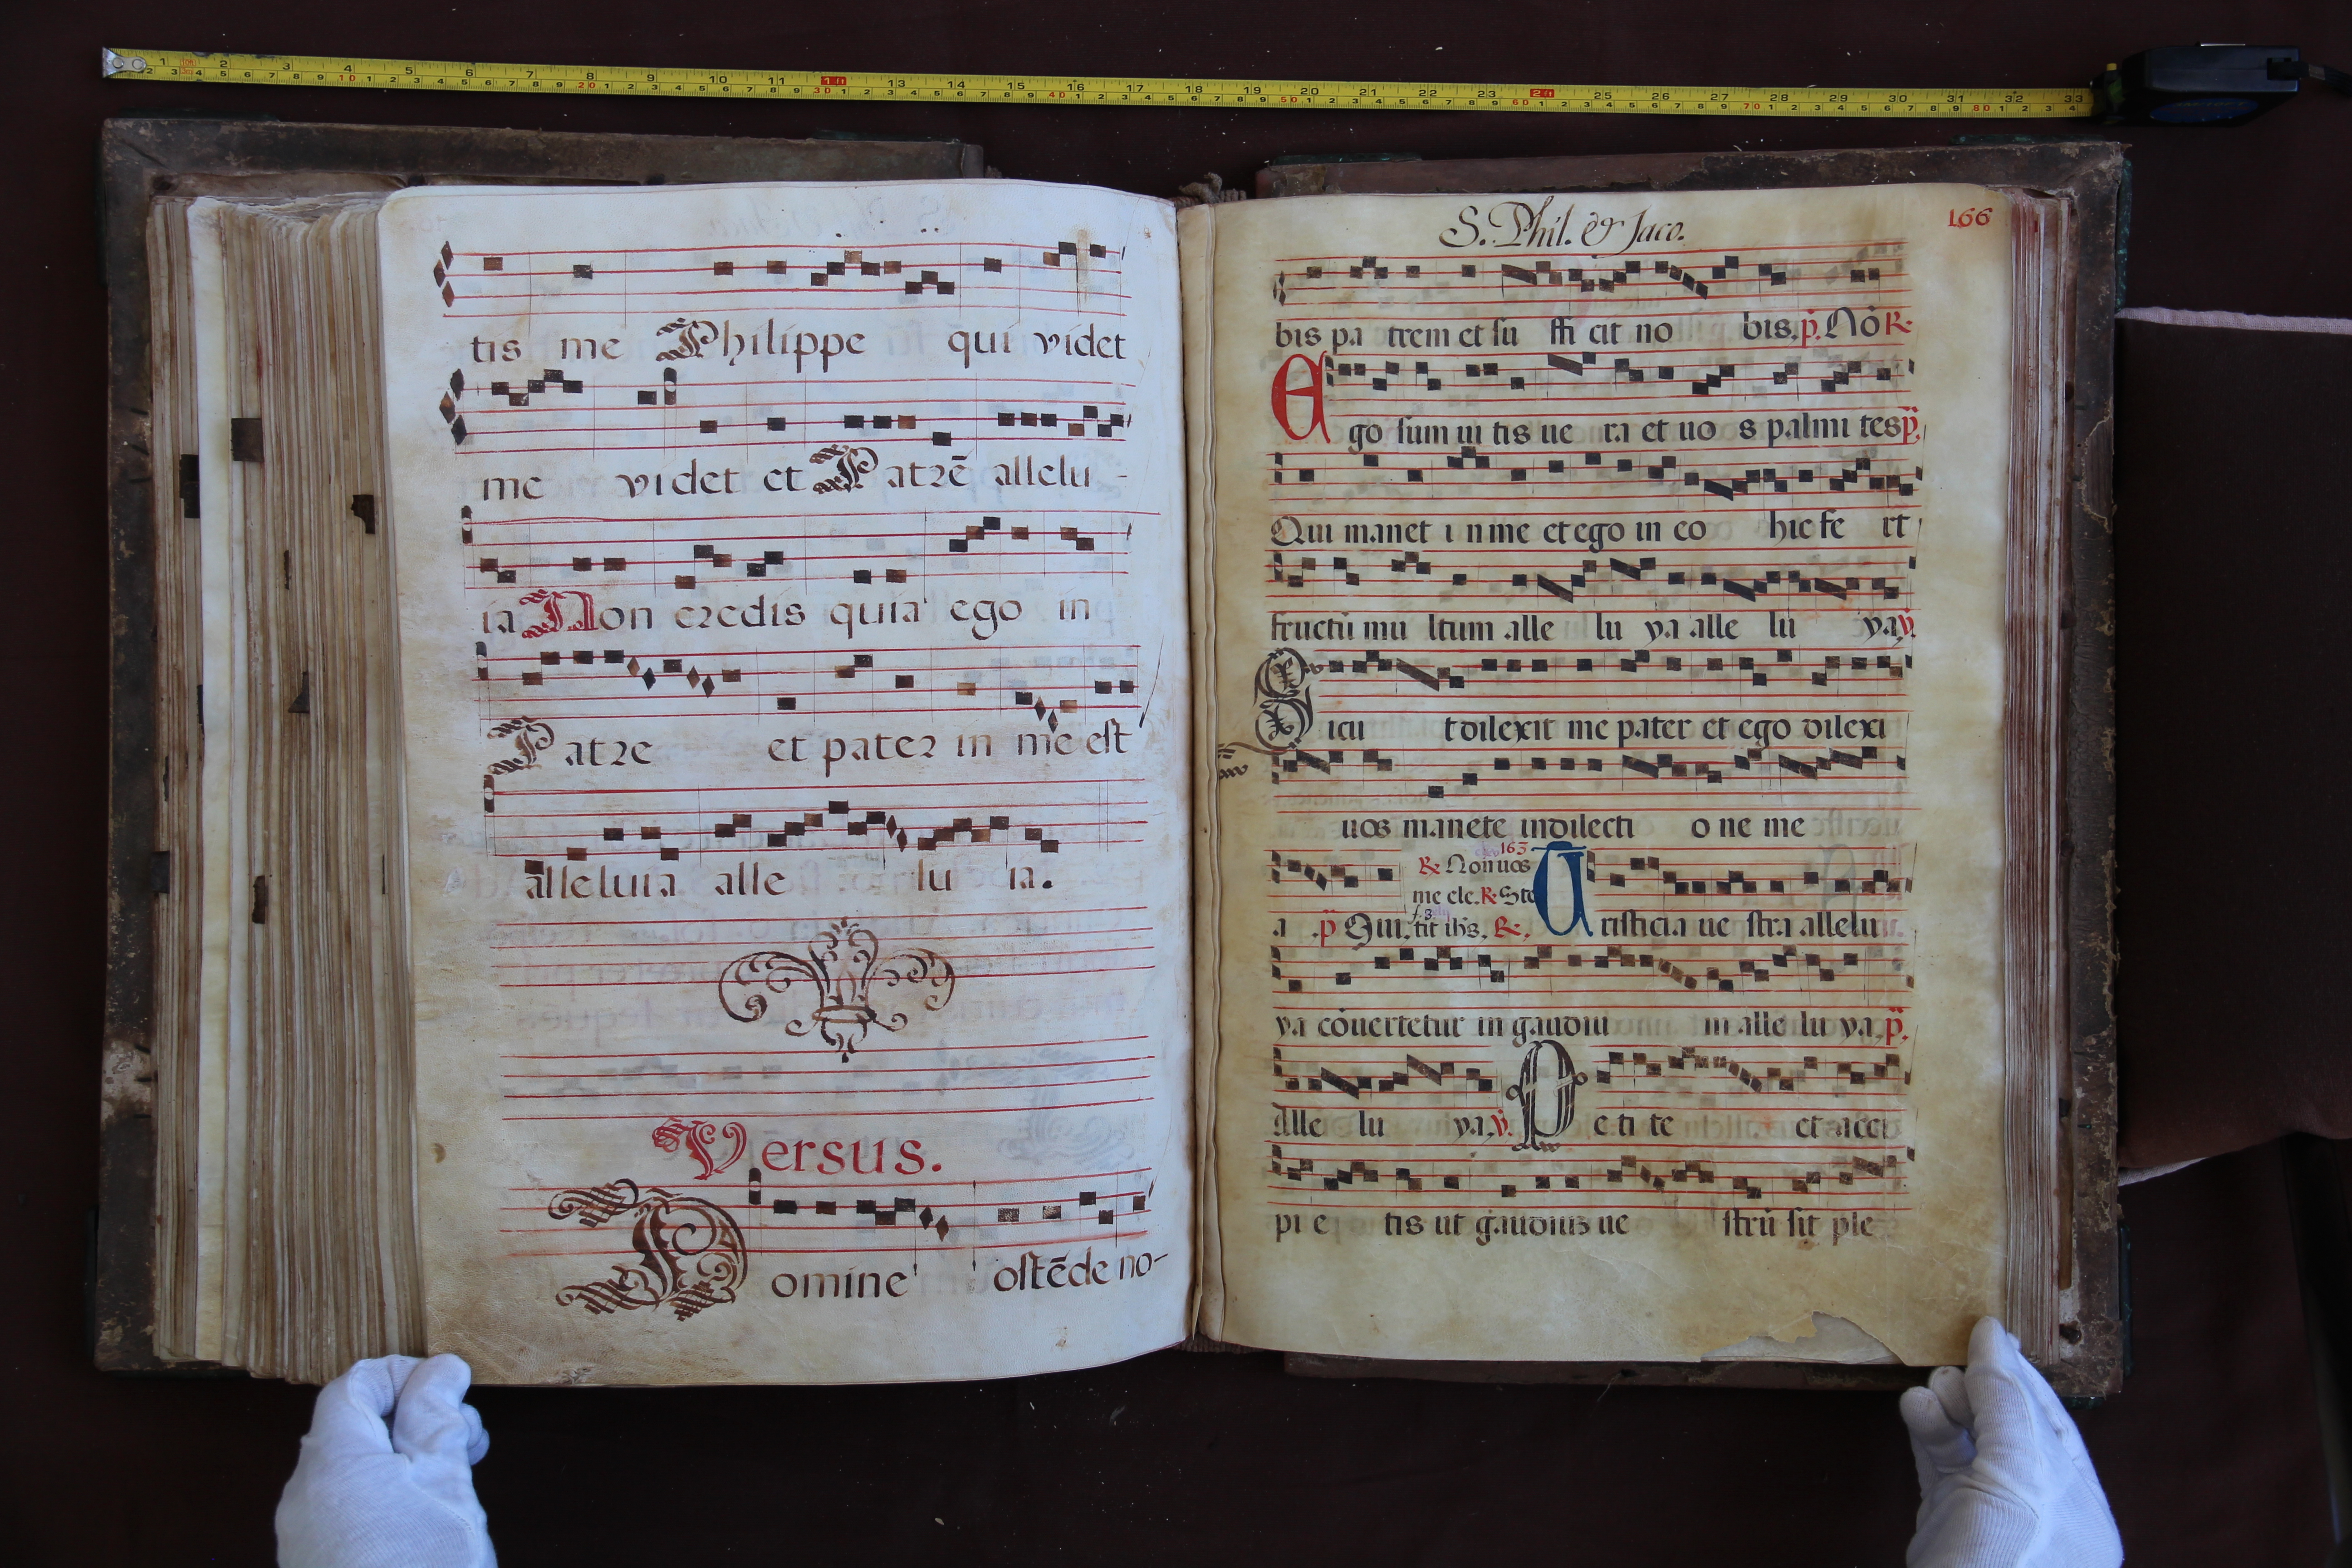 tis me Philippe qui videt
me videt et Patrē allelu-
ia Non credis quia ego in
Patre et pater in me est
alleluia alle lu ia.
Versus.
Domine ostēde no-
S. Phil. & Jaco.
166
bis pa trem et su ffi cit no bis. p. No R.
Ego sum ui tis ue ra et uo s palmi tes p.
Qui manet i n me et ego in eo hic fe rt
fructū mu ltum alle lu ya alle lu ya. v.
Sicu t dilexit me pater et ego dilexi
uos manete indilecti o ne me
163
R. Non uos
me ele. R. Ste
f. 3.
a p Qui. tit ihs. R. Tristicia ue stra allelu
ya cōuertetur in gaudiu m alle lu ya. p.
Alle lu ya. v. Pe ti te et acci
pi e tis ut gaudiuz ue strū sit ple